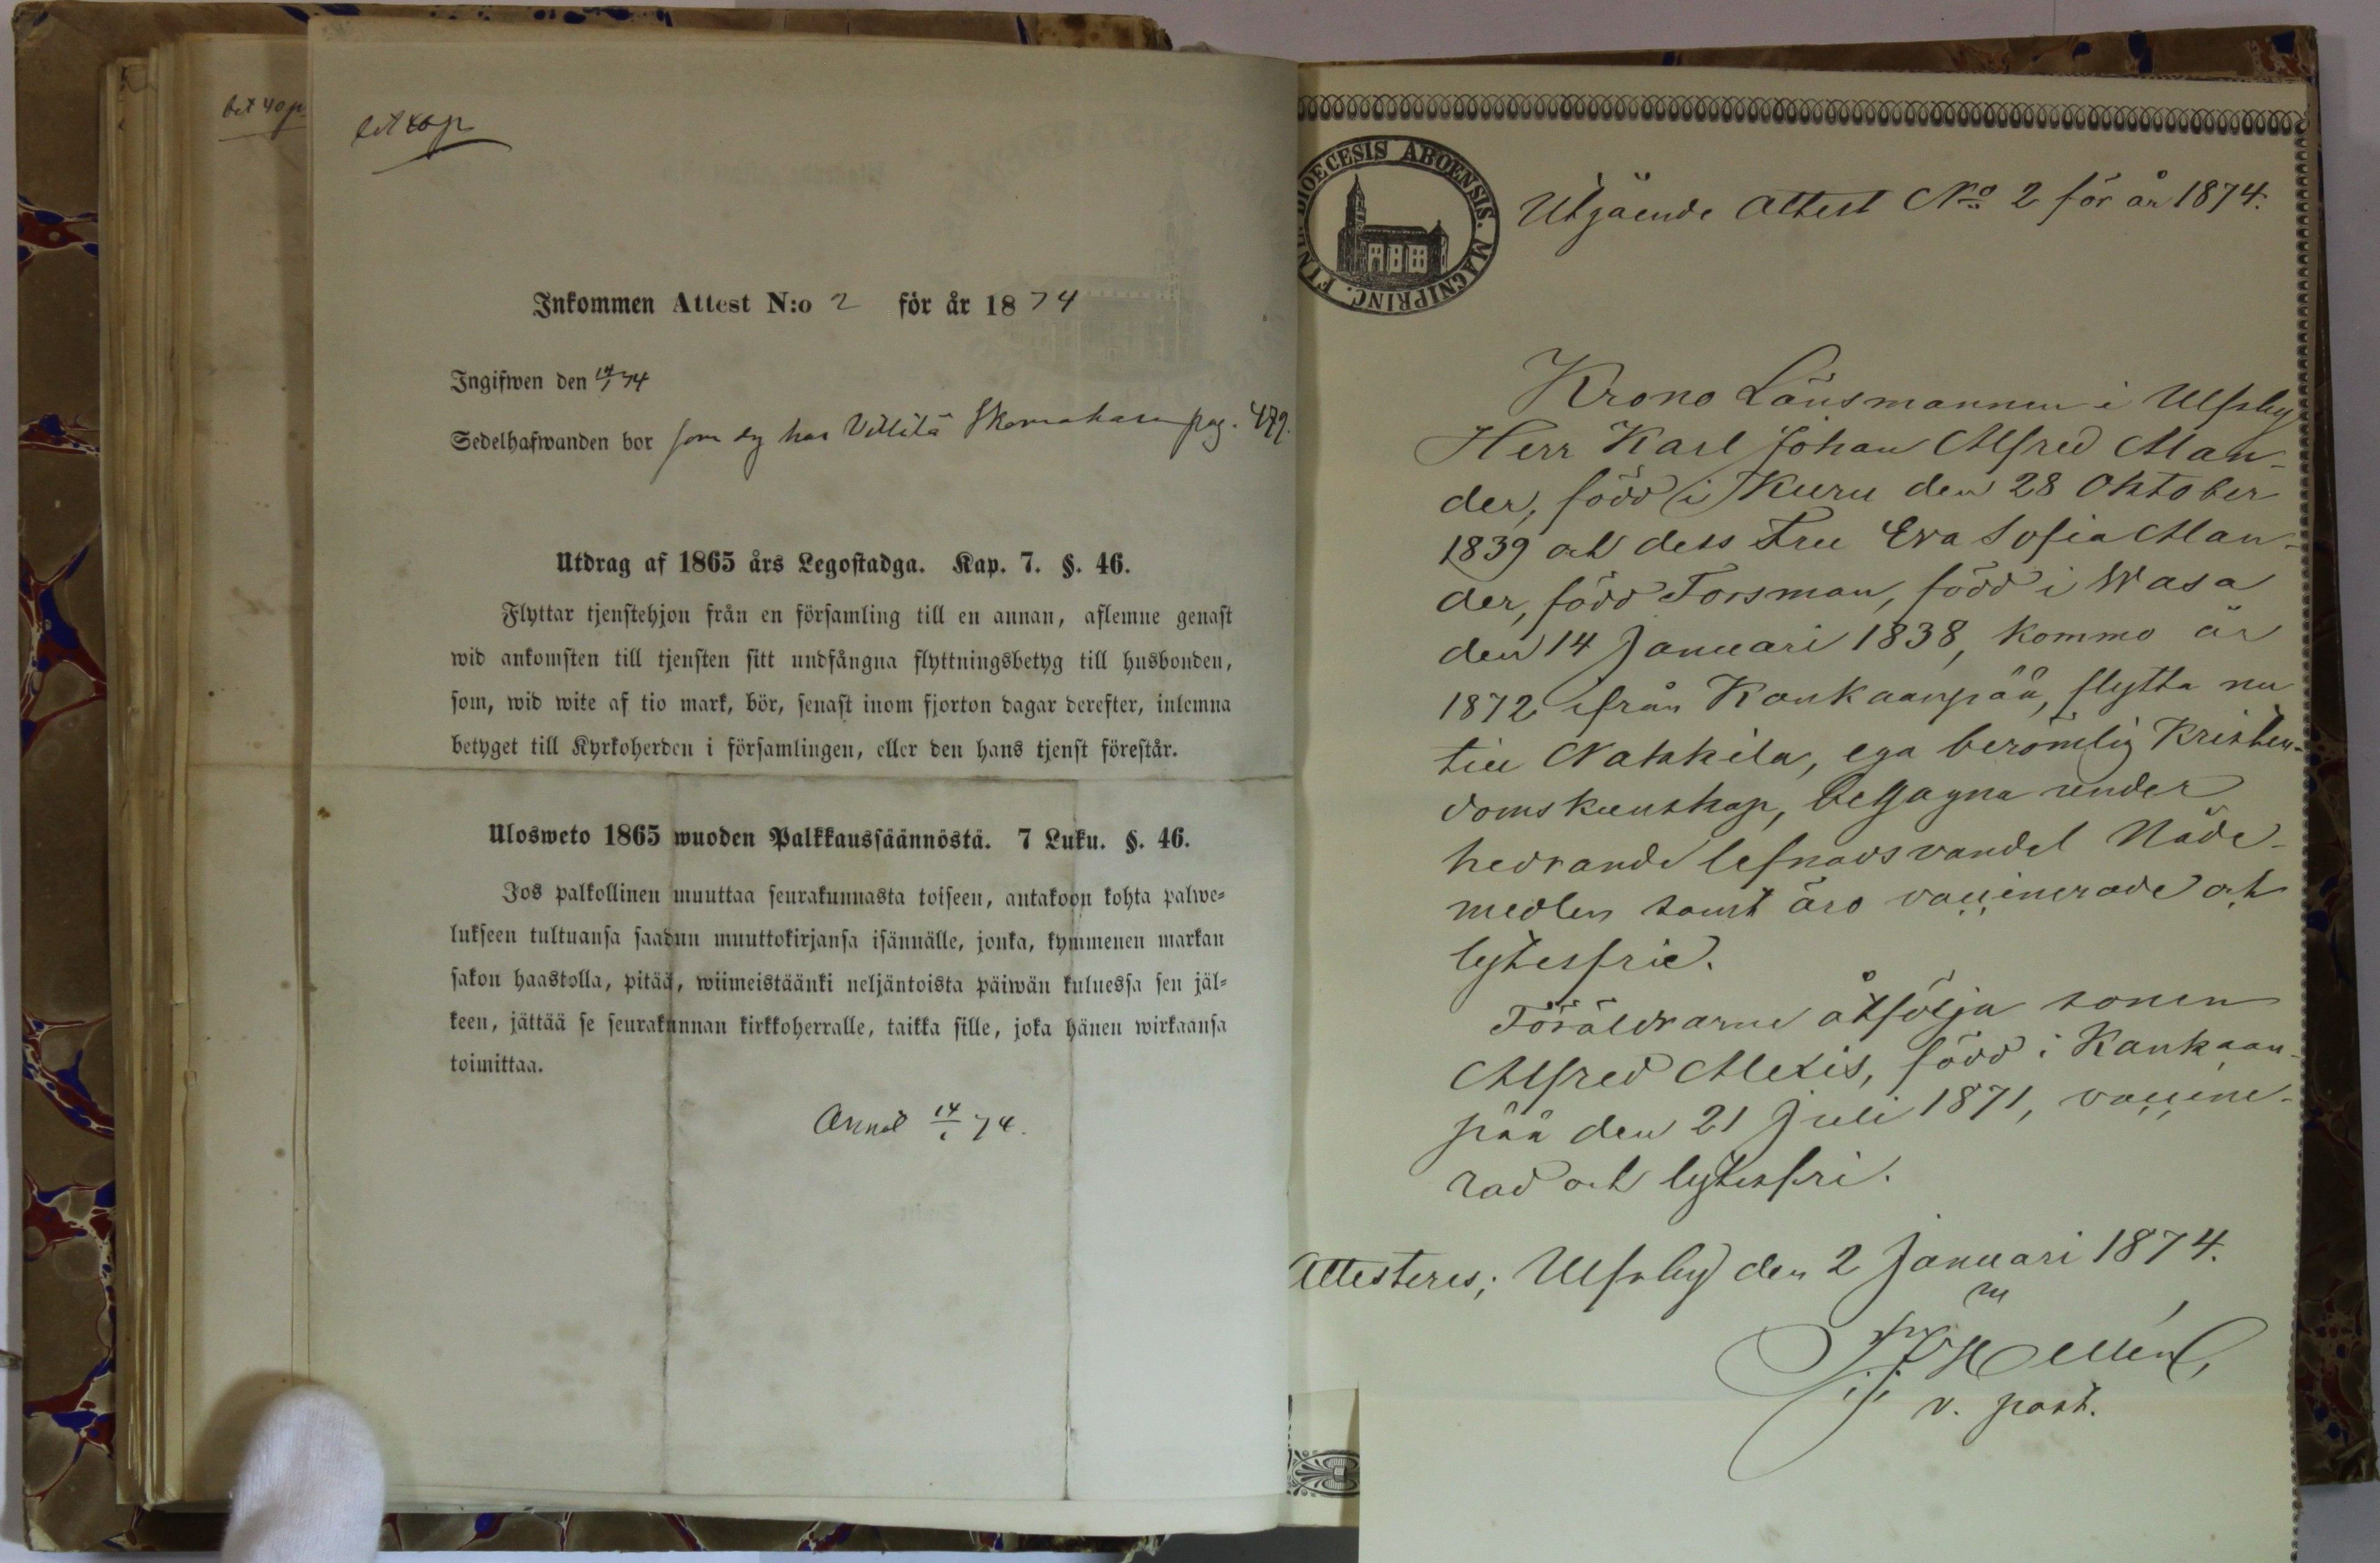 bet 40 p
bet 40 p
Inkommen Attest N:o 2 för år 1874
Ingifwen den 14/1 74
Sedelhafwanden bor som dg hos Villilä pag. 479.
Utdrag af 1865 års Legostadga. Kap. 7. §. 46.
Flyttar tjenstehjon från en församling till en annan, aflemne genast
wid ankomsten till tjensten sitt undfångna flyttningsbetyg till husbonden,
som, wid wite af tio mark, bör, senast inom fjorton dagar derefter, inlemna
betyget till Kyrkoherden i församlingen, eller den hans tjenst förestår.
Ulosweto 1865 wuoden Palkkaussäännöstä. 7 Luku. §. 46.
Jos palkollinen muuttaa seurakunnasta toiseen, antakoon kohta palwe-
lukseen tultuansa saadun muuttokirjansa isännälle, jonka, kymmenen markan
sakon haastolla, pitää, wiimeistäänki neljäntoista päiwän kuluessa sen jäl-
keen, jättää se seurakunnan kirkkoherralle, taikka sille, joka hänen wirkaansa
toimittaa.
Anmäl 14/1 74.
DIOECESIS ABOENSIS. MAGNIPRINC. FINL.
Utgående Attest No 2 för år 1874.
Krono Länsmannen i Ulfsby
Herr Karl Johan Alfred Man-
der, född i Kuru den 28 Oktober
1839 och dess Fru Eva Sofia Man-
der, född Forsman, född i Wasa
den 14 Januari 1838, kommo år
1872 ifrån Kankaanpää, flytta nu
till Nakkila, ega berömlig Kristen-
domskunskap, begagna under
hedrande lefnadsvandel Nåde-
medlen samt äro vaccinerade och
lytesfrie.
Föräldrarne åtfölja sonen
Alfred Alexis, född i Kankaan-
pää den 21 Juli 1871, vaccine-
rad och lytesfri.
Attesteres; Ulfsby den 2 Januari 1874.
Hellén,
v. past.